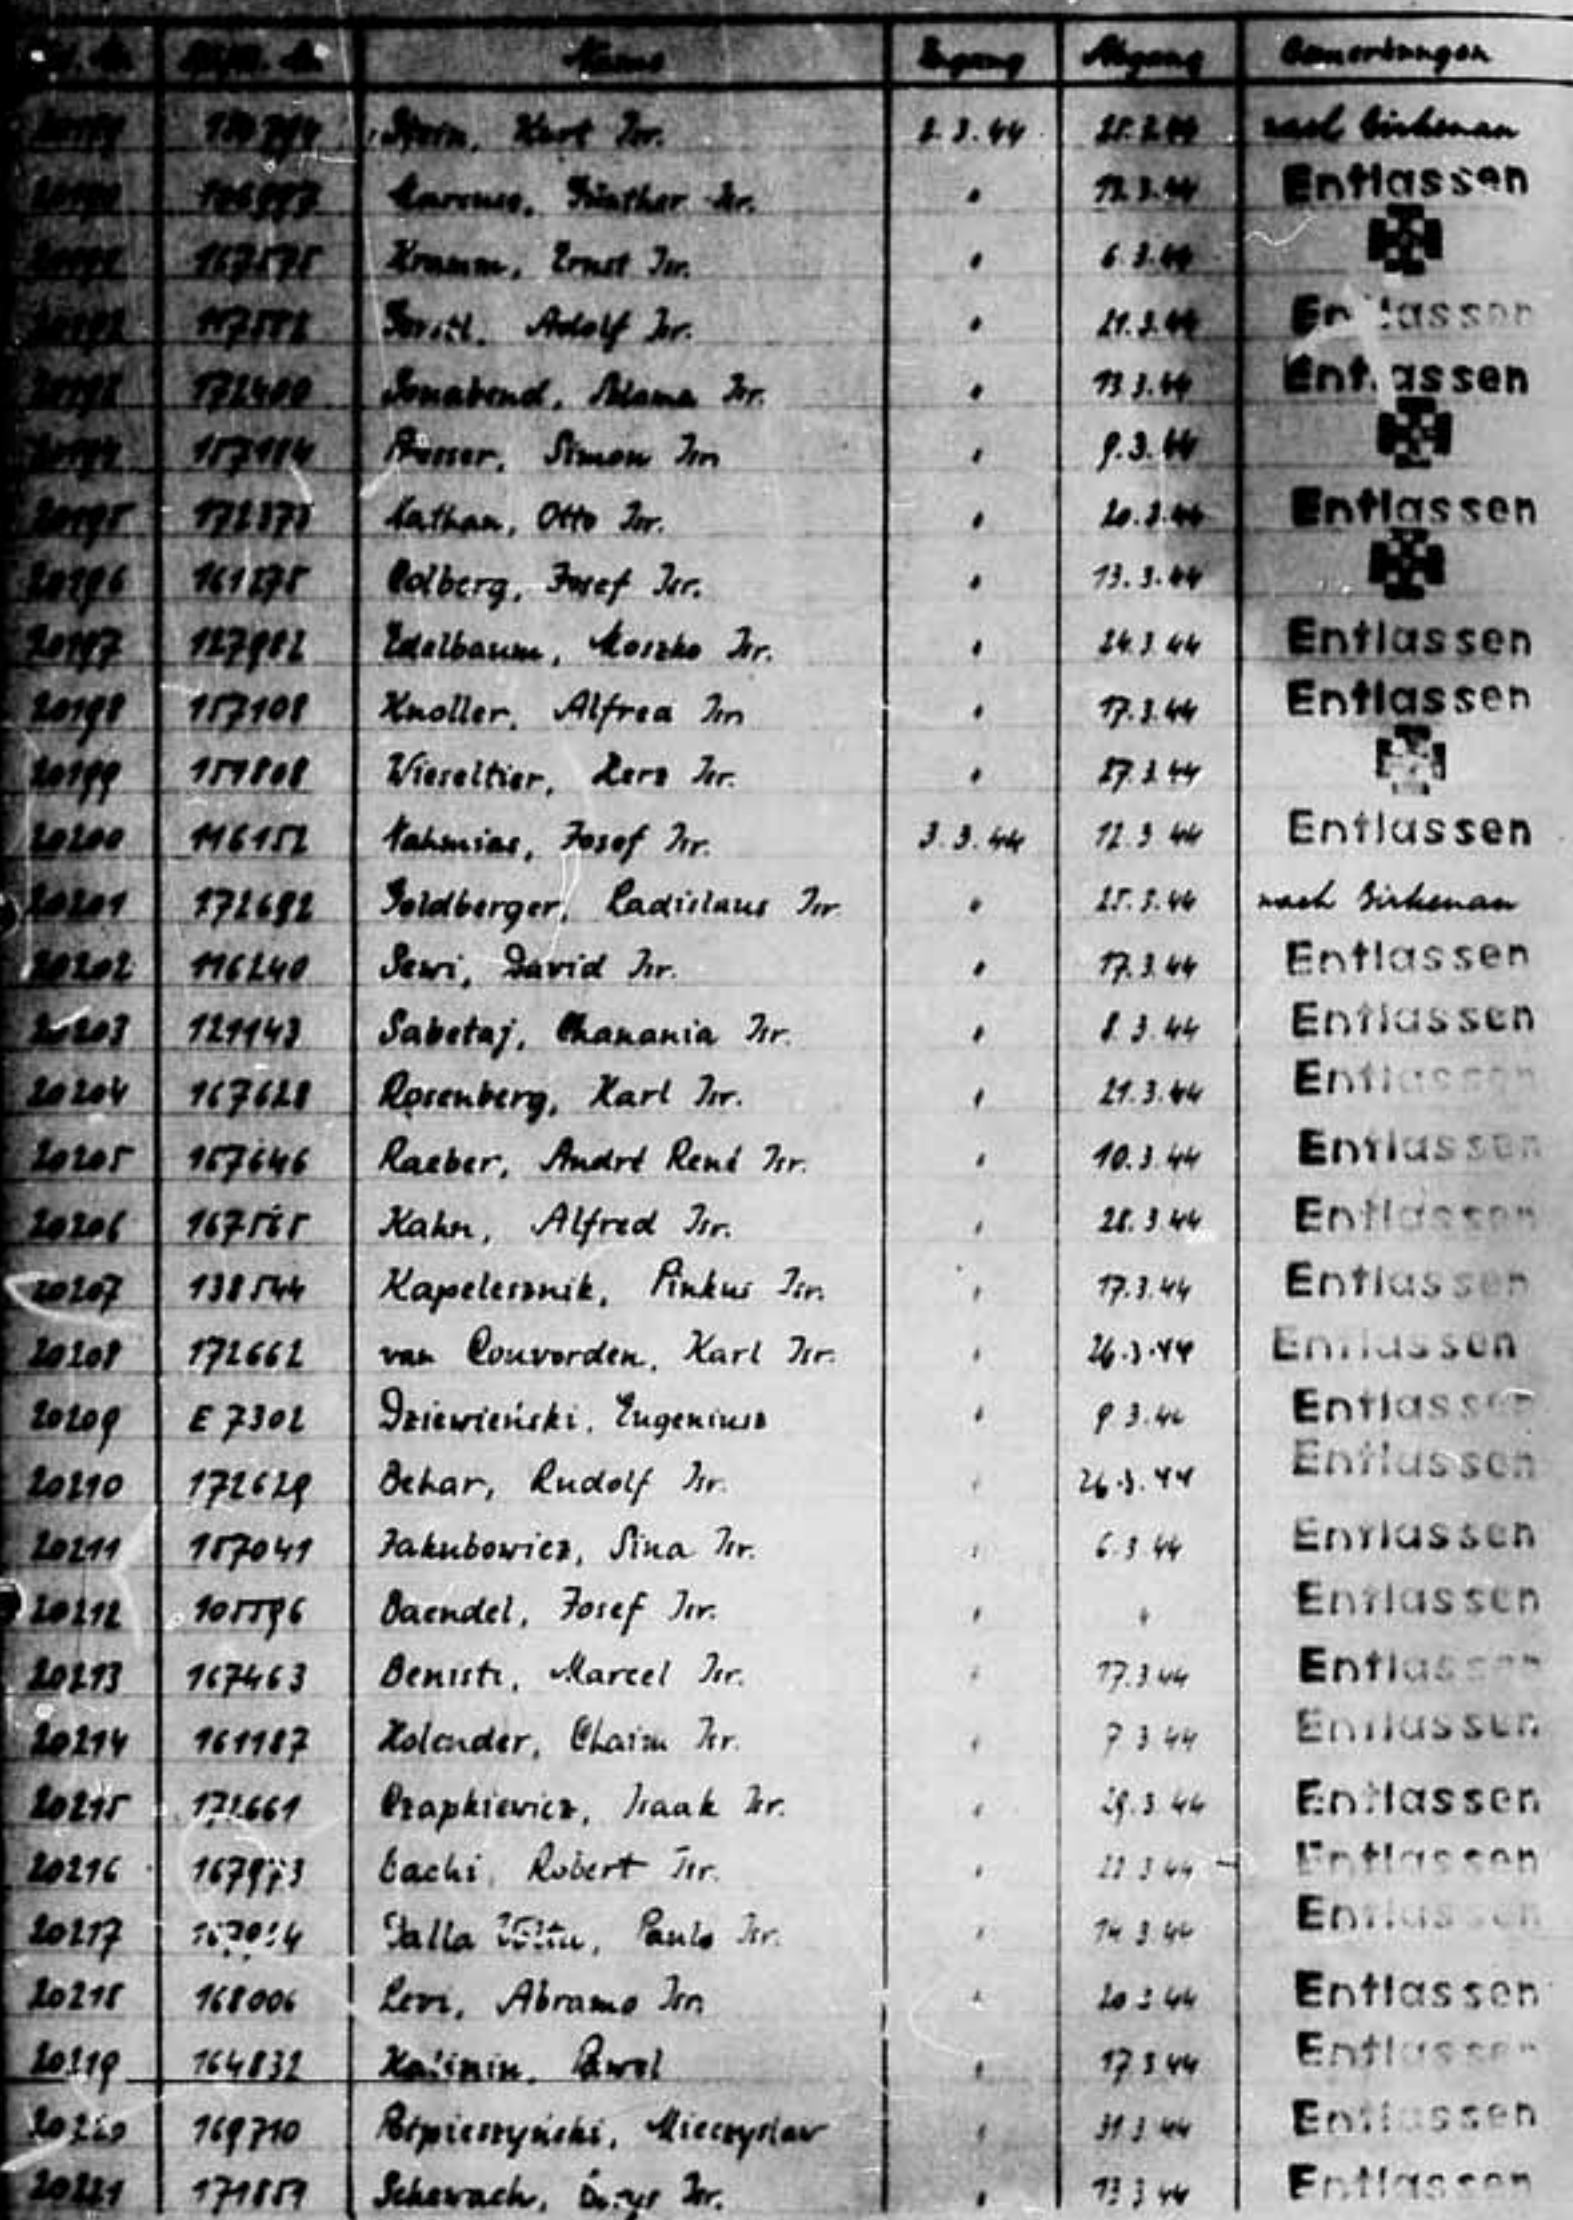 Name Zugang Abgang Bemerkungen
Kurt Isr. 2.3.44 nach Birkenau
Günther Isr. " 12.3.44 Entlassen
167575 Kramm, Ernst Isr. " 6.3.44
Adolf Isr. " 21.3.44 Entlassen
172400 Isr. " 13.3.44 Entlassen
157184 Simon Isr. " 9.3.44
20195 172373 Nathan, Otto Isr. " 20.3.44 Entlassen
20196 161575 Colberg, Josef Isr. " 13.3.44
20197 127982 Edelbaum, Moszko Isr. " 24.3.44 Entlassen
20198 157108 Knoller, Alfred Isr. " 17.3.44 Entlassen
20199 151808 Wieseltier, Herz Isr. " 27.3.44
20200 116152 Nahmias, Josef Isr. 3.3.44 12.3.44 Entlassen
20201 172692 Goldberger, Ladislaus Isr. " 25.3.44 nach Birkenau
20202 116240 Sewi, David Isr. " 17.3.44 Entlassen
20203 121143 Sabetaj, Chanania Isr. " 8.3.44 Entlassen
20204 167628 Rosenberg, Karl Isr. " 21.3.44 Entlassen
20205 167646 Raeber, André René Isr. " 10.3.44 Entlassen
20206 167565 Kahn, Alfred Isr. " 28.3.44 Entlassen
20207 138544 Kapelesznik, Pinkus Isr. " 17.3.44 Entlassen
20208 172662 van Couvorden, Karl Isr. " 26.3.44 Entlassen
20209 E 7302 Dziewieński, Eugeniusz " 9.3.44 Entlassen
20210 172629 Behar, Rudolf Isr. " 26.3.44 Entlassen
20211 157041 Jakubowicz, Sina Isr. " 6.3.44 Entlassen
20212 105596 Baendel, Josef Isr. " " Entlassen
20213 167463 Benisti, Marcel Isr. " 17.3.44 Entlassen
20214 161187 Holender, Chaim Isr. " 7.3.44 Entlassen
20215 172661 Czapkiewicz, Isaak Isr. " 29.3.44 Entlassen
20216 167973 Bachi, Robert Isr. " 22.3.44 Entlassen
20217 Dalla Paulo Isr. " 14.3.44 Entlassen
20218 168006 Levi, Abramo Isr. " 20.3.44 Entlassen
20219 164832 Kalinin, Pawel " 17.3.44 Entlassen
20220 169710 Mieczyslaw " 31.3.44 Entlassen
20221 171859 Schewach, Isr. " 13.3.44 Entlassen